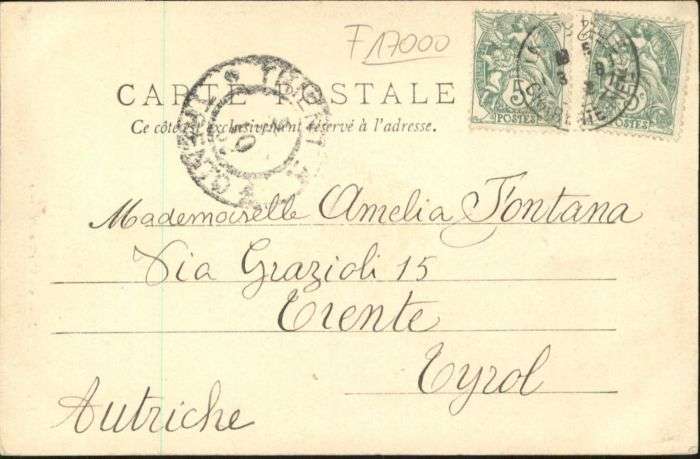 F 17000
5
POSTES
5
POSTES
CARTE POSTALE
Ce côté est exclusivement réservé à l'adresse.
Mademoiselle Amelia Fontana
Via Grazioli 15
Trente
Tyrol
Autriche